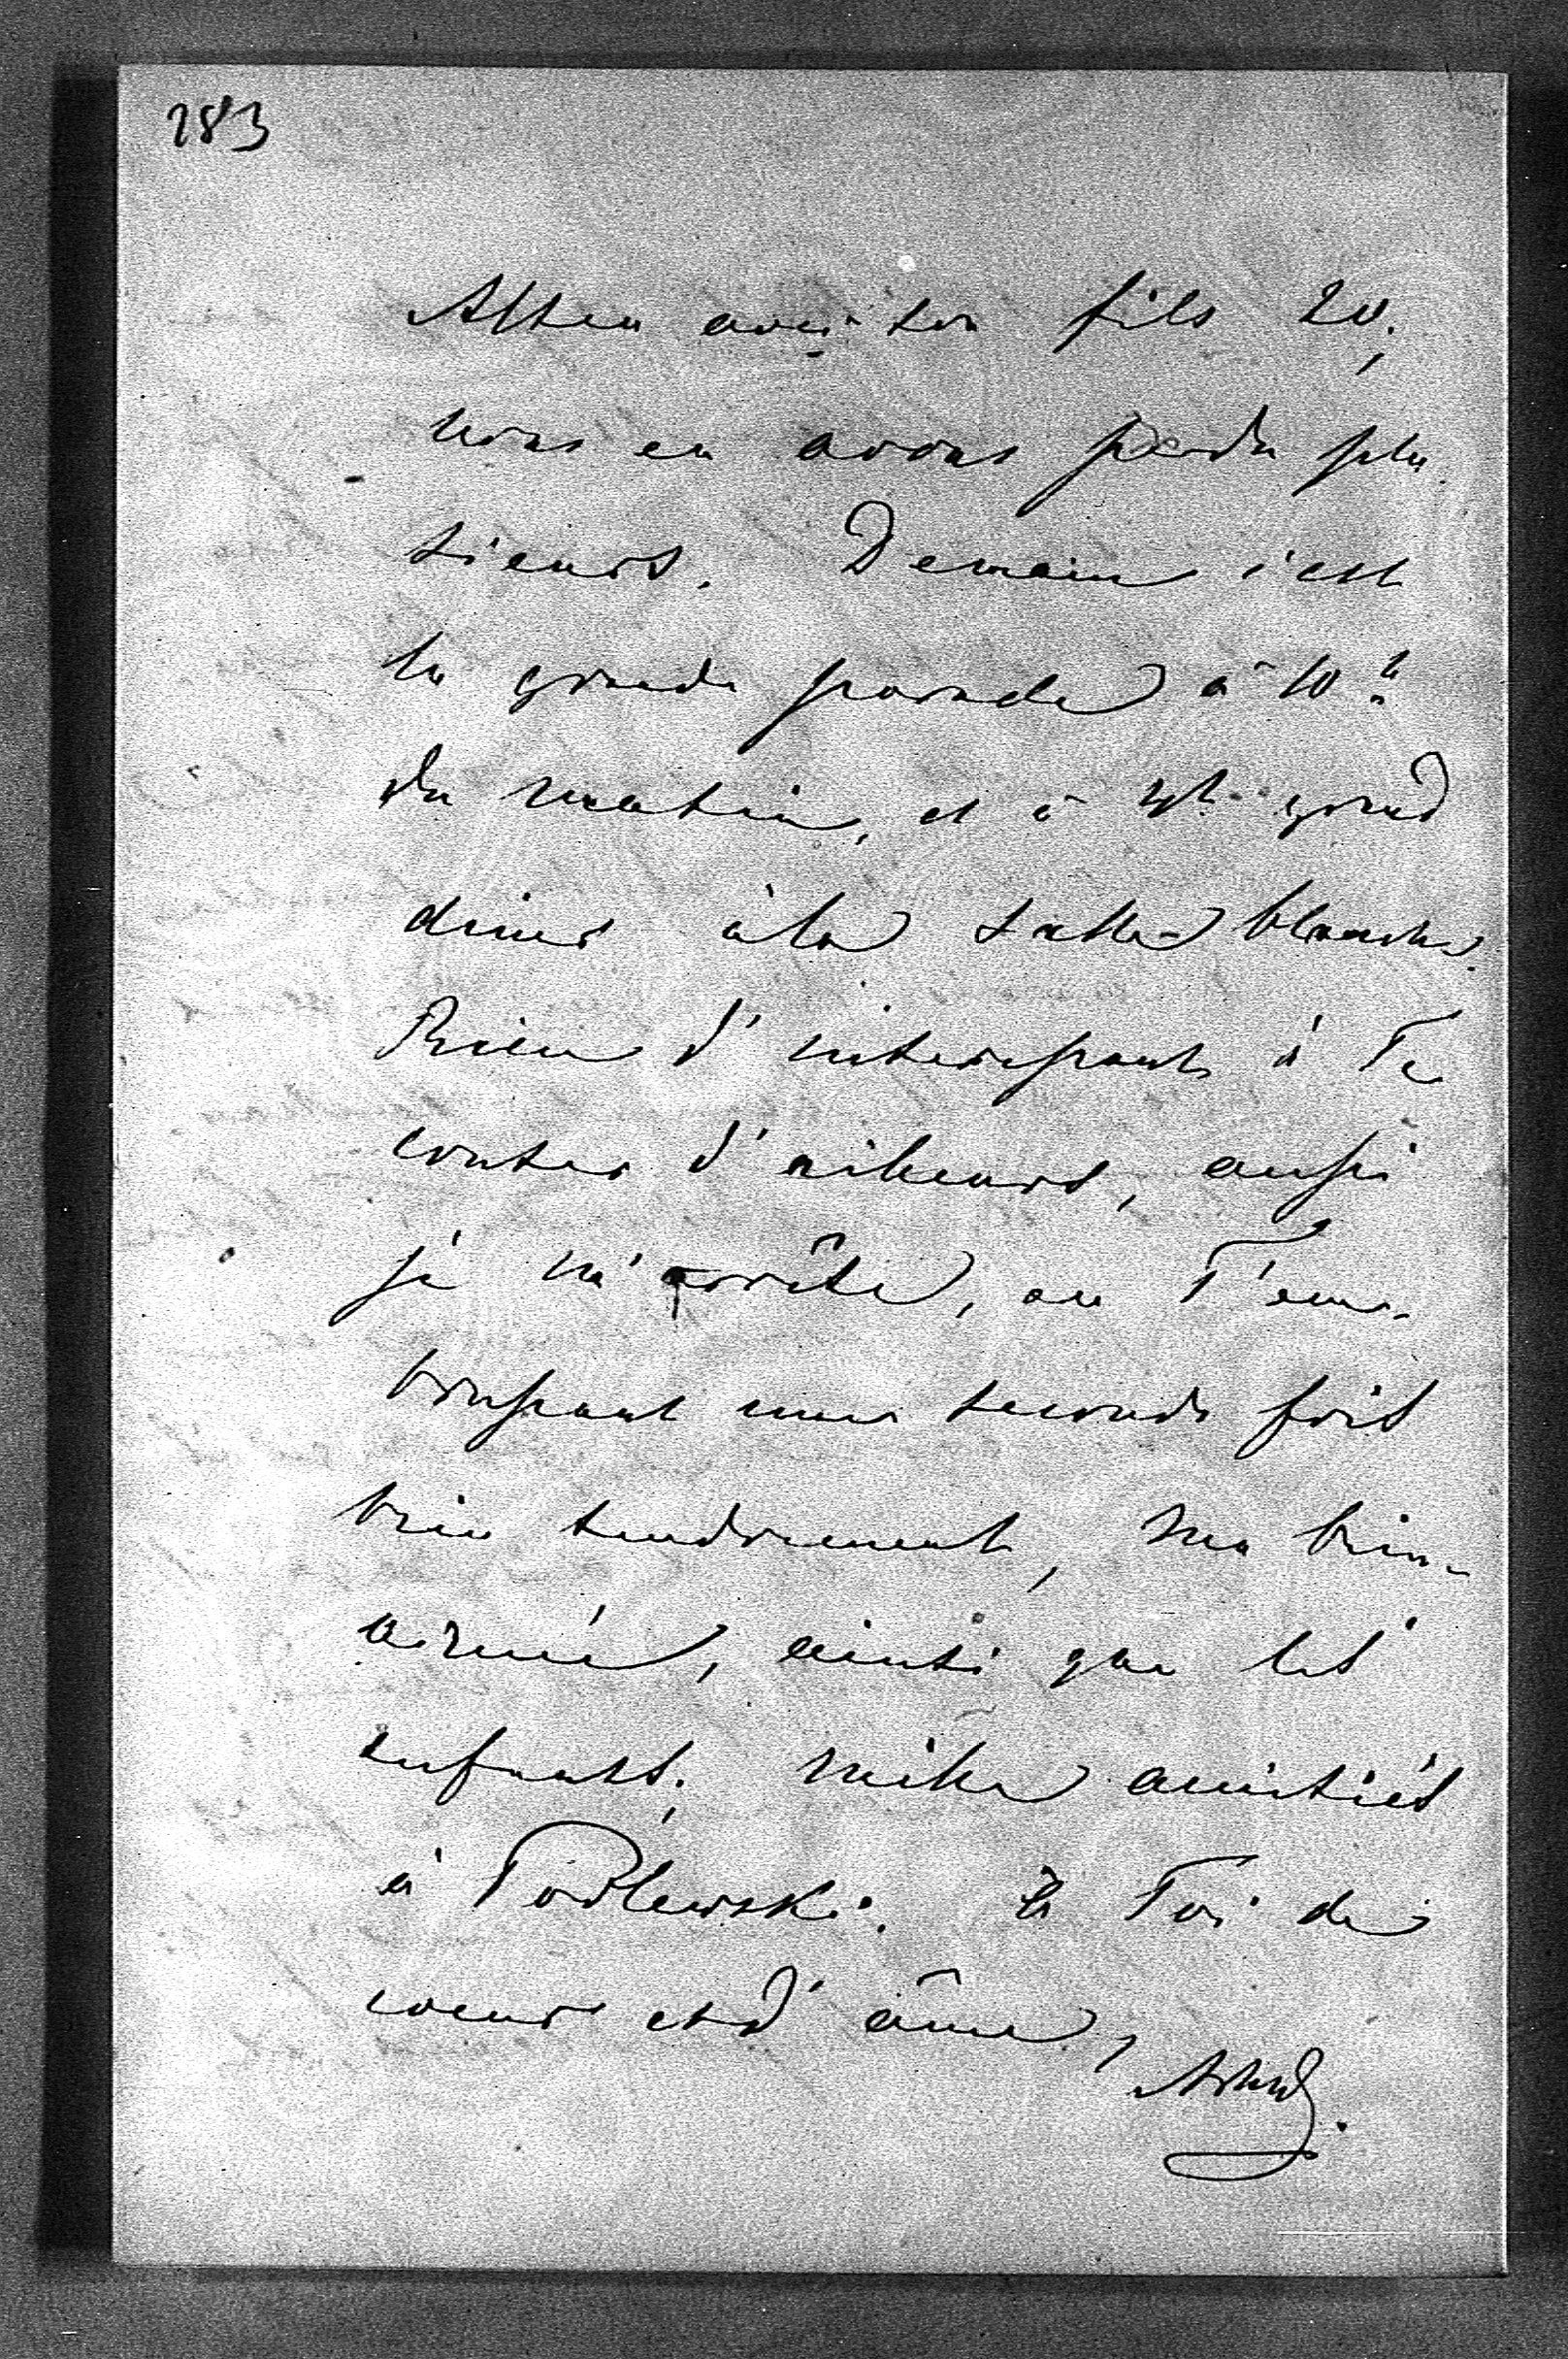 283
Altén avec son fils 20,
nous en avons perdu plu
sieurs. Demain c'est
la grande parade à 10 h
du matin, et à 4h. grand
diner à la salle blanche.
Rien d'interessant à Te
conter d'ailleurs, aussi
je m'arrête, en T'em-
brassant une seconde fois
bien tendrement, ma bien-
aimée, ainsi que les
enfants. mille amitiés
à Podlewski. à Toi de
coeur et d'âme,